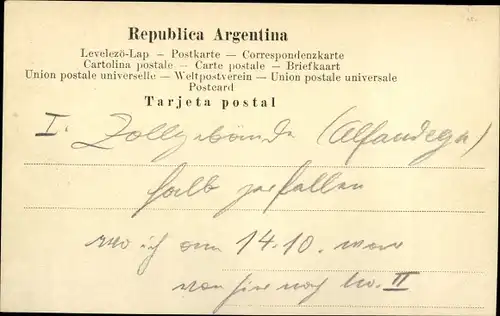 Republica Argentina
Levelezö-Lap — Postkarte — Correspondenzkarte
Cartolina postale — Carte postale — Briefkaart
Union postale universelle — Weltpostverein — Union postale universale
Postcard
Tarjeta postal
I. Zollgebäude (Alfandega)
halb zerfallen
wo ich am 14.10. war
von hier nach No. II